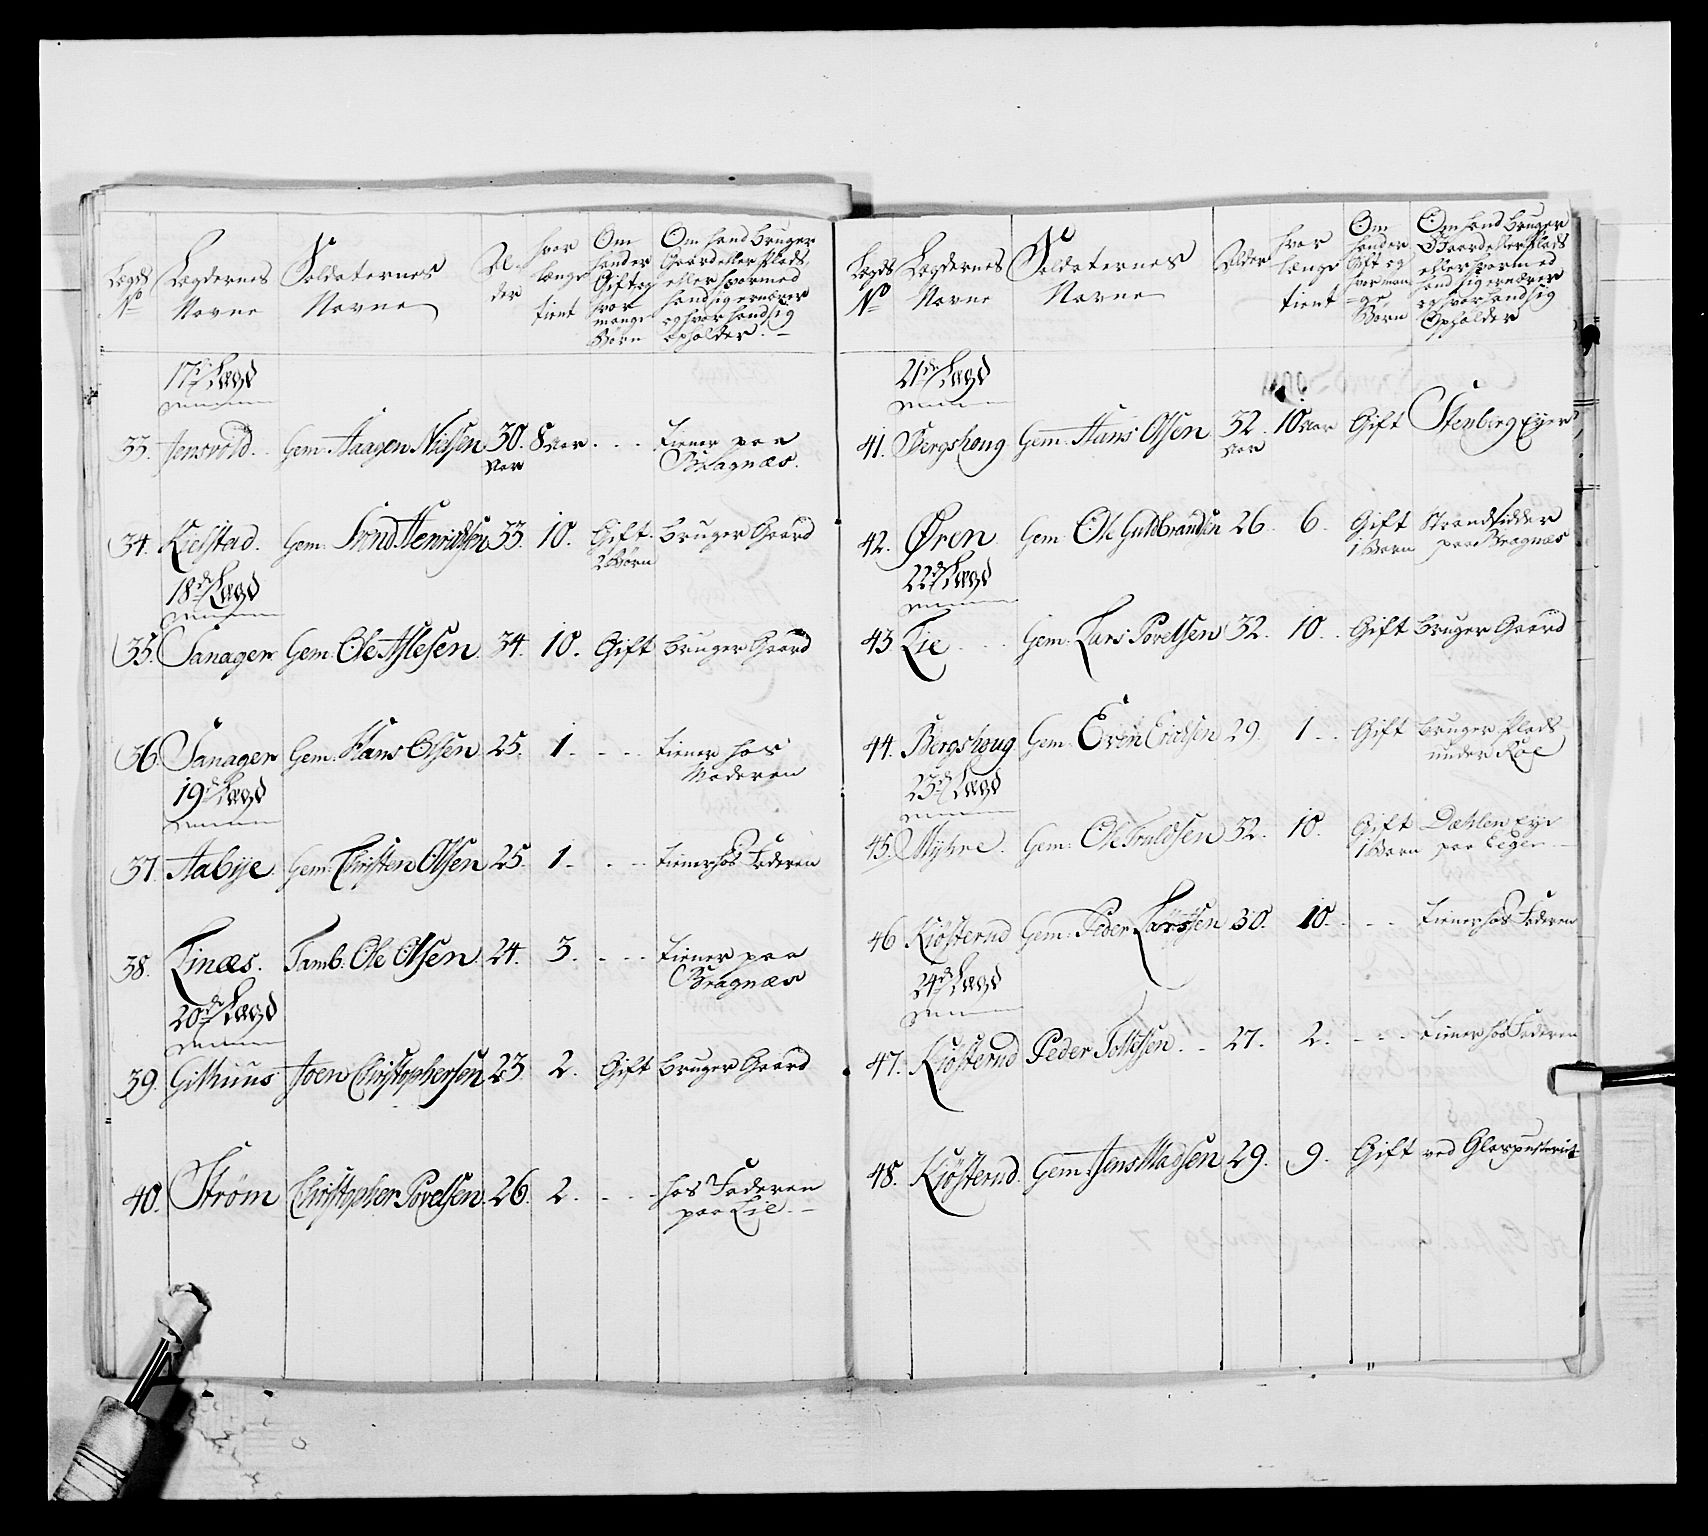 Legds No
Legdernes Navne
Soldaternes Navne
Alder
hvor længe tient
Om hand er Gift og hvor mange Børn
Om hand bruger Gaard eller Plads, eller hvormed hand sig ernærer og hvor hand sig opholder
17de Lægd
33. Jensvold. Gem: Haagen Nielsen 30. Aar 8 Aar. tiener paa Bragnæs.
34. Kielstad. Gem: Trond Henrichsen 33. 10. Gift. 2 Børn bruger Gaard
18de Lægd
35. Sanager Gem: Ole Aslesen. 34. 10. Gift bruger Gaard
36. Sanager Gem: Hans Olsen. 25. 1. tiener hos Moderen
19de Lægd
37. Aabye. Gem: Christen Olsen. 25. 1. tiener hos Faderen
38. Linæs. Tamb: Ole Olsen. 24. 3. tiener paa Bragnæs
20de Lægd
39. Gilhuus Joen Christophersen 23. 2. Gift bruger Gaard
40. Strøm Christopher Povelsen. 26. 2. hos Faderen paa Lie.
Legds No
Legdernes Navne
Soldaternes Navne
Alder
hvor længe tient
Om hand er Gift og hvor mange Børn
Om hand bruger Gaard eller Plads eller hvormed hand sig ernærer og hvor hand sig Opholder
21de Lægd
41. Bergshoug Gem: Hans Olsen 32. Aar 10 Aar Gift Stenberg Eyer
42. Øren Gem: Ole Guldbrandsen 26. 6. Gift 1 Barn Strandsidder paa Bragnæs
22de Lægd
43. Lie Gem: Lars Povelsen 32. 10. Gift bruger Gaard
44. Bergshoug. Gem: Even Erichsen 29. 1. Gift bruger Plads under Roe
23de Lægd
45. Myhre. Gem: Ole Truldsen 32. 10. Gift 1 Barn Dahlen Eye paa Eger
46. Kiøsterud Gem: Peder Larssen 30. 10. tiener hos Faderen
24de Lægd
47. Kiøsterud Peder Tollefsen 27. 2. tiener hos Faderen
48. Kiøsterud. Gem: Jens Madsen 29. 9. Gift ved Glaspusteriet